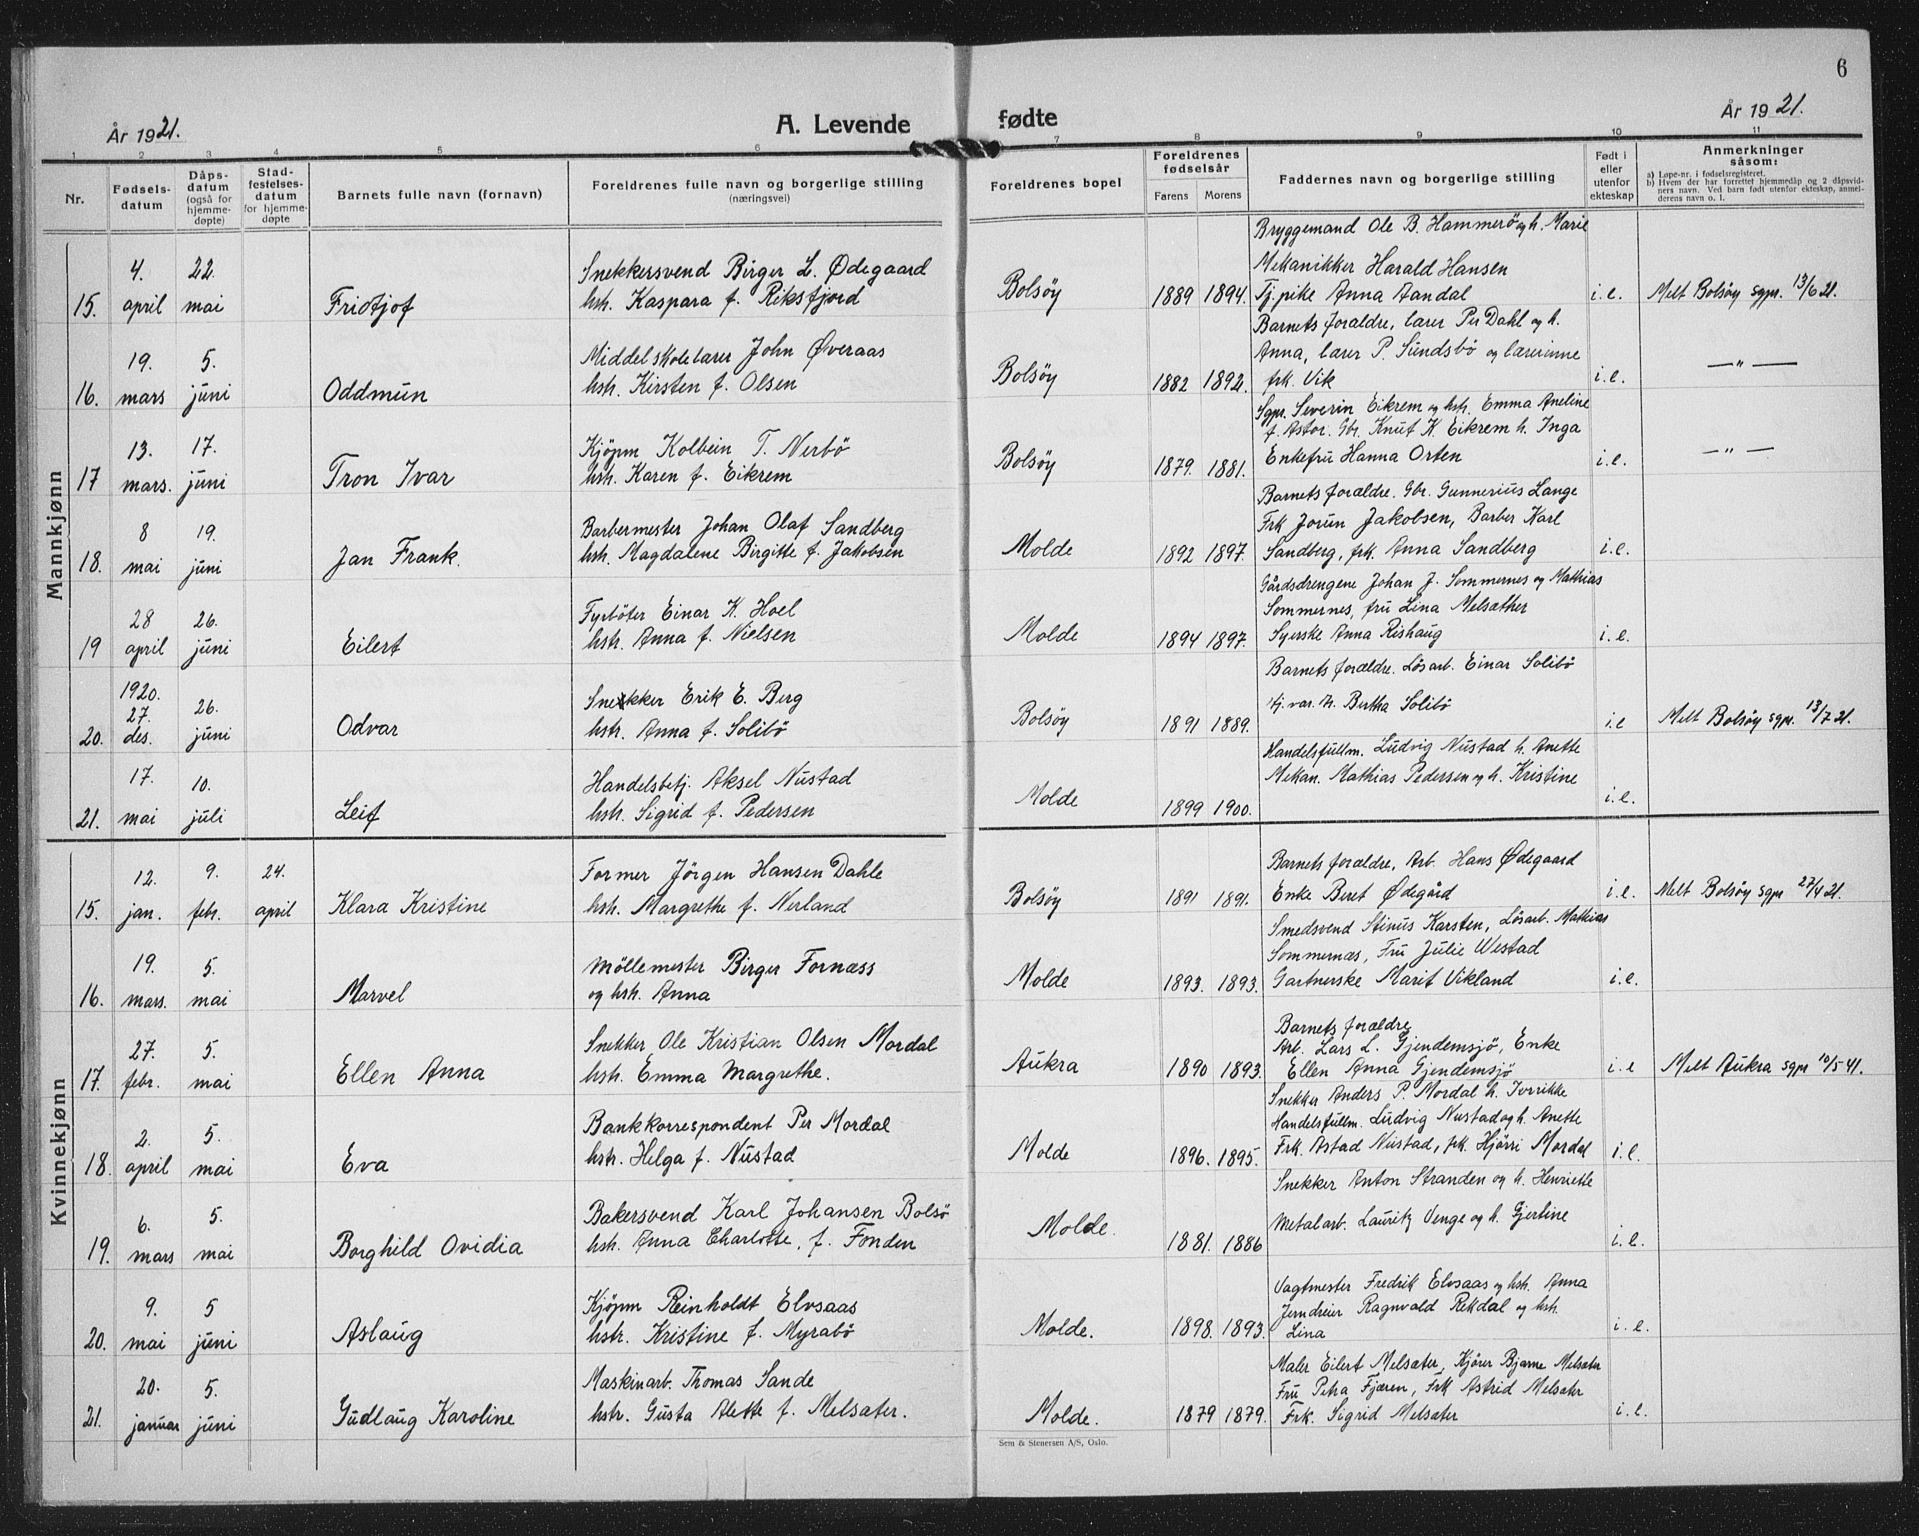 6
År 1921.
A. Levende
fødte
År 1921.
1 2 3 4 5 6 7 8 9 10 11
Nr.
Fødsels-
datum
Dåps-
datum
(også for
hjemme-
døpte)
Stad-
festelses-
datum
for hjemme-
døpte
Barnets fulle navn (fornavn)
Foreldrenes fulle navn og borgerlige stilling
(næringsvei)
Foreldrenes bopel
Foreldrenes
fødselsår
Farens Morens
Faddernes navn og borgerlige stilling
Født i
eller
utenfor
ekteskap
Anmerkninger
såsom:
a) Løpe-nr. i fødselsregisteret.
b) Hvem der har forrettet hjemmedåp og 2 dåpsvid-
ners navn. Ved barn født utenfor ekteskap, anmel-
derens navn o. l.
Mannkjønn
15. 4. april 22. mai Fridtjof
Snekkersvend Birger L. Ødegaard
hstr. Kaspara f. Riksfjord
Bolsöy 1889 1894.
Bryggemand Ole B. Hammerö og h. Marie
Mekanikker Harald Hansen
Tj. pike Anna Aandal
i.e. Melt Bolsöy sgpr. 13/6 21.
16. 19. mars 5. juni Oddmun
Middelskolelærer John Øveraas
hstr. Kirsten f. Olsen
Bolsöy 1882 1892.
Barnets foraldre, lærer Per Dahl og h.
Anna, lærer P. Sundsbö og lærerinne
frk. Vik
i.e. — " —
17 13. mars. 17. juni Tron Ivar
Kjöpm Kolbein T. Nerbö
hstr. Karen f. Eikrem
Bolsöy 1879. 1881.
Sgpr. Severin Eikrem og hstr. Emma Aneline
f. Astor. Gbr. Knut K. Eikrem h. Inga
Enkefru Hanna Orten
i.e. — " —
18. 8 mai 19. juni Jan Frank.
Barbermester Johan Olaf Sandberg
hstr. Magdalene Birgitte f. Jakobsen
Molde 1892 1897.
Barnets forældre. Gbr. Gunnerius Lange
Frk Jorun Jakobsen, Barber Karl
Sandberg, frk. Anna Sandberg
i.e.
19 28 april 26. juni Eilert
Fyrböter Einar K. Hoel
hstr. Anna f. Nielsen
Molde 1894 1897.
Gårdsdrengene Johan J. Sommernes og Mathias
Sommernes, fru Lina Melsæther
Syerske Anna Rishaug
i.e.
20. 1920. 27. des. 26. juni Odvar
Snekker Erik E. Berg
hstr. Anna f. Solibö
Bolsöy 1891 1889.
Barnets forældre. Lösarb. Einar Solibö
Bertha Solibö
i.e Melt Bolsöy sgpr. 13/7 21.
21. 17. mai 10. juli Leif
Handelsbetj. Aksel Nustad
hstr. Sigrid f. Pedersen
Molde 1899 1900.
Handelsfullm. Ludvig Nustad h. Anette
Mekan. Mathias Pedersen og h. Kristine
i.e.
Kvinnekjønn
15. 12. jan. 9. febr. 24. april Klara Kristine
Former Jörgen Hansen Dahle
hstr. Margrethe f. Nerland
Bolsöy 1891 1891.
Barnets forældre, Arb. Hans Ødegaard
Enke Beret Ødegård
i.e. Melt Bolsöy sgpr 27/4 21.
16. 19. mars. 5. mai Marvel
Möllemester Birger Fornæss
og hstr. Anna
Molde 1893. 1893.
Smedsvend Stinus Karsten, Lösarb. Mathias
Sommernæs, Fru Julie Westad
Gartnerske Marit Vikland
i.e.
17. 27. febr. 5. mai Ellen Anna
Snekker Ole Kristian Olsen Mordal
hstr. Emma Margrethe.
Aukra 1890 1893.
Barnets forældre
Arb. Lars L. Gjendemsjö, Enke
Ellen Anna Gjendemsjö
i.e Melt Aukra sgpr 10/5 41.
18. 2. april 5. mai Eva
Bankkorrespondent Per Mordal
hstr. Helga f. Nustad
Molde 1896. 1895.
Snekker Anders P. Mordal h. Iverikke
Handelsfullm. Ludvig Nustad og h. Anette
Frk. Astad Nustad, frk. Hjörri Mordal
i.e.
19. 6. mars 5. mai Borghild Ovidia
Bakersvend Karl Johansen Bolsö
hstr. Anna Charlotte, f. Fonden
Molde. 1881. 1886
Snekker Anton Stranden og h. Henriette
Metalarb. Lauritz Venge og h. Gjertine
i.e.
20. 9. mai 5 juni Aslaug
Kjöpm Reinholdt Elvsaas
hstr. Kristine f. Myrabö
Molde. 1898. 1893.
Vagtmester Fredrik Elvsaas og hstr. Anna
Jerndreier Ragnvald Rekdal og hstr.
Lina
i.e.
21. 20. januar 5. juni Gudlaug Karoline
Maskinarb. Thomas Sande
hstr. Gusta Alette f. Melsæter.
Molde. 1879 1879.
Maler Eilert Melsæter, Kjörer Bjarne Melsæter
Fru Petra Fjæren, Frk Astrid Melsæter
Frk. Sigrid Melsæter
i.e.
Sem & Stenersen A/S, Oslo.